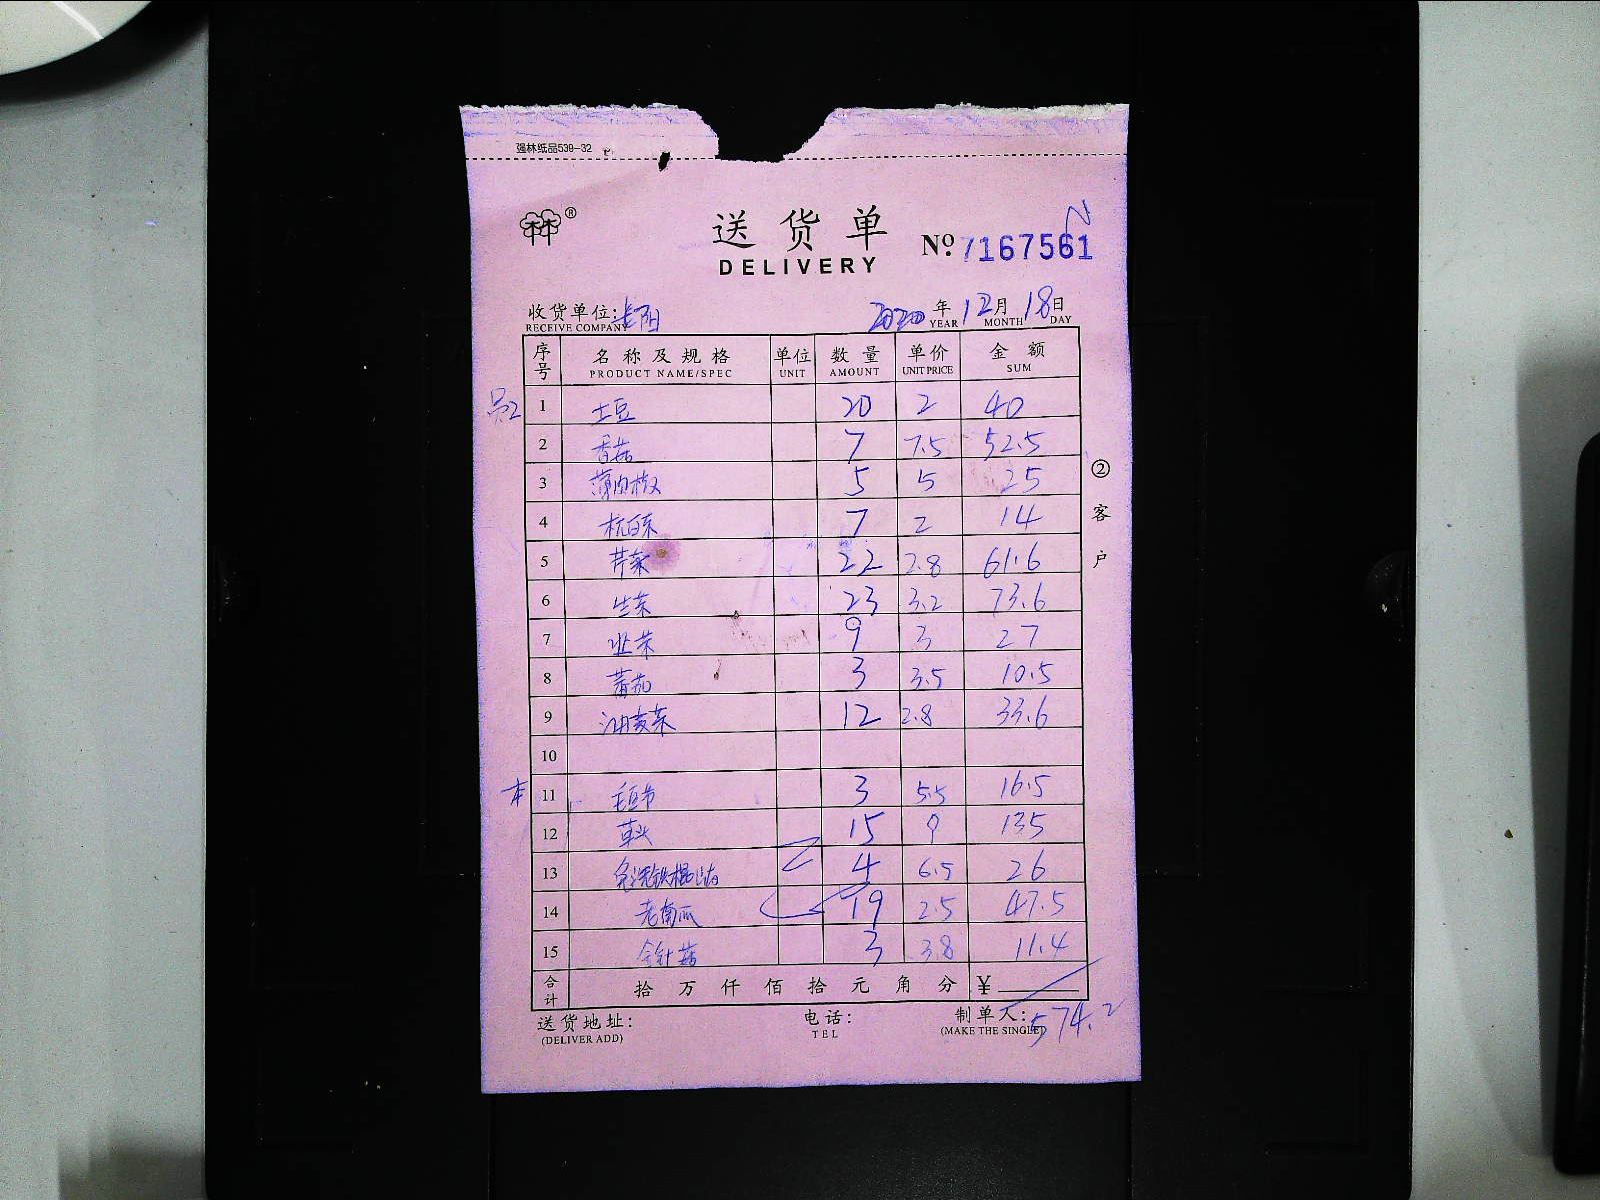 强林纸品539-32
送货单
DELIVERY
№ 7167561
收货单位: 长阳
RECEIVE COMPANY
2020 年 12 月 18 日
YEAR MONTH DAY
序号 名称及规格 单位 数量 单价 金额
PRODUCT NAME/SPEC UNIT AMOUNT UNIT PRICE SUM
1 土豆 20 2 40
2 香菇 7 7.5 52.5
3 薄肉椒 5 5 25
4 杭白菜 7 2 14
5 芹菜 22 2.8 61.6
6 生菜 23 3.2 73.6
7 韭菜 9 3 27
8 蕃茄 3 3.5 10.5
9 油麦菜 12 2.8 33.6
10
本 11 毛豆节 3 5.5 16.5
12 草头 15 9 135
13 免洗铁棍山药 4 6.5 26
14 老南瓜 19 2.5 47.5
15 金针菇 3 3.8 11.4
合计 拾 万 仟 佰 拾 元 角 分 ¥
574.2
②客户
送货地址: 电话: 制单人:
(DELIVER ADD) TEL (MAKE THE SINGLE)